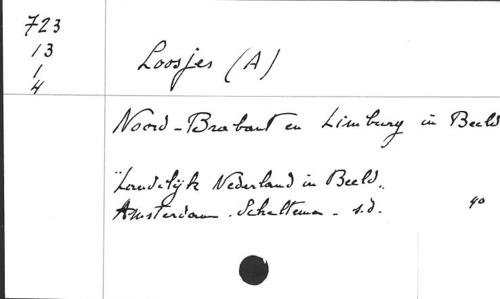 723
13
1
4
Loosjes (A)
Noord-Brabant en Limburg in Beeld
"Landelijk Nederland in Beeld"
Amsterdam. Scheltema - s.d.
40